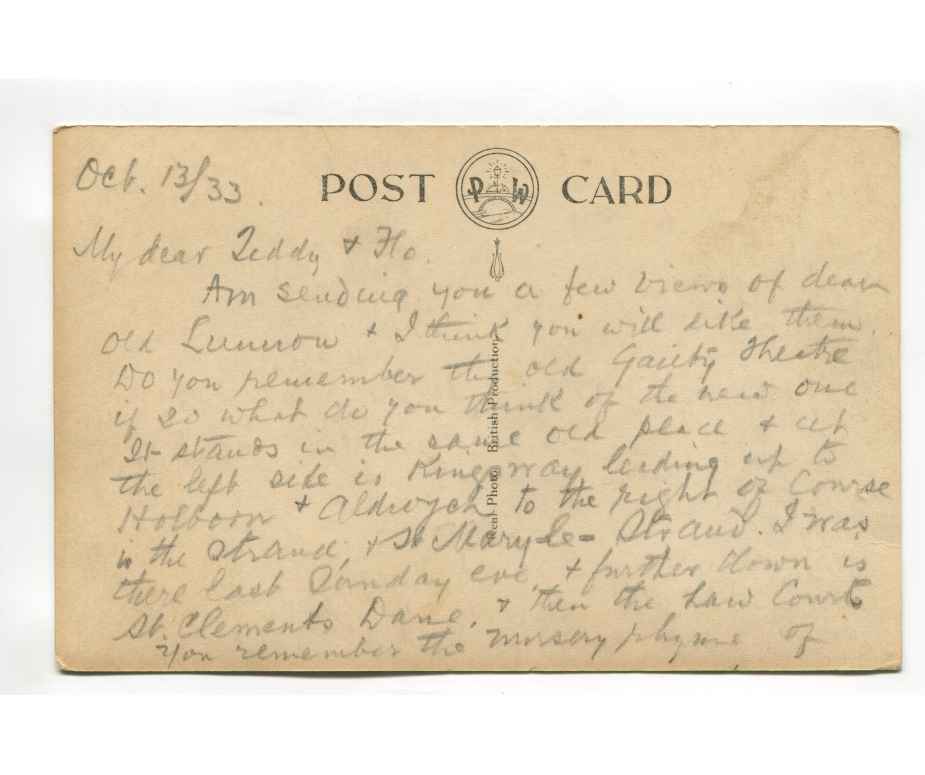 Oct. 13/33.
POST PW CARD
My dear Teddy & Flo.
Am sending you a few views of dear
old Lunnon & I think you will like them.
Do you remember the old Gaiety Theatre
if so what do you think of the new one
It stands in the same old place & up
the left side is Kingsway leading up to
Holborn & Aldwych to the right of Course
is the Strand, & St Mary-le-Strand. I was
there last Sunday eve, & further down is
St. Clements Dane, & then the Law Courts
You remember the nursery rhyme of
Real Photo British Production